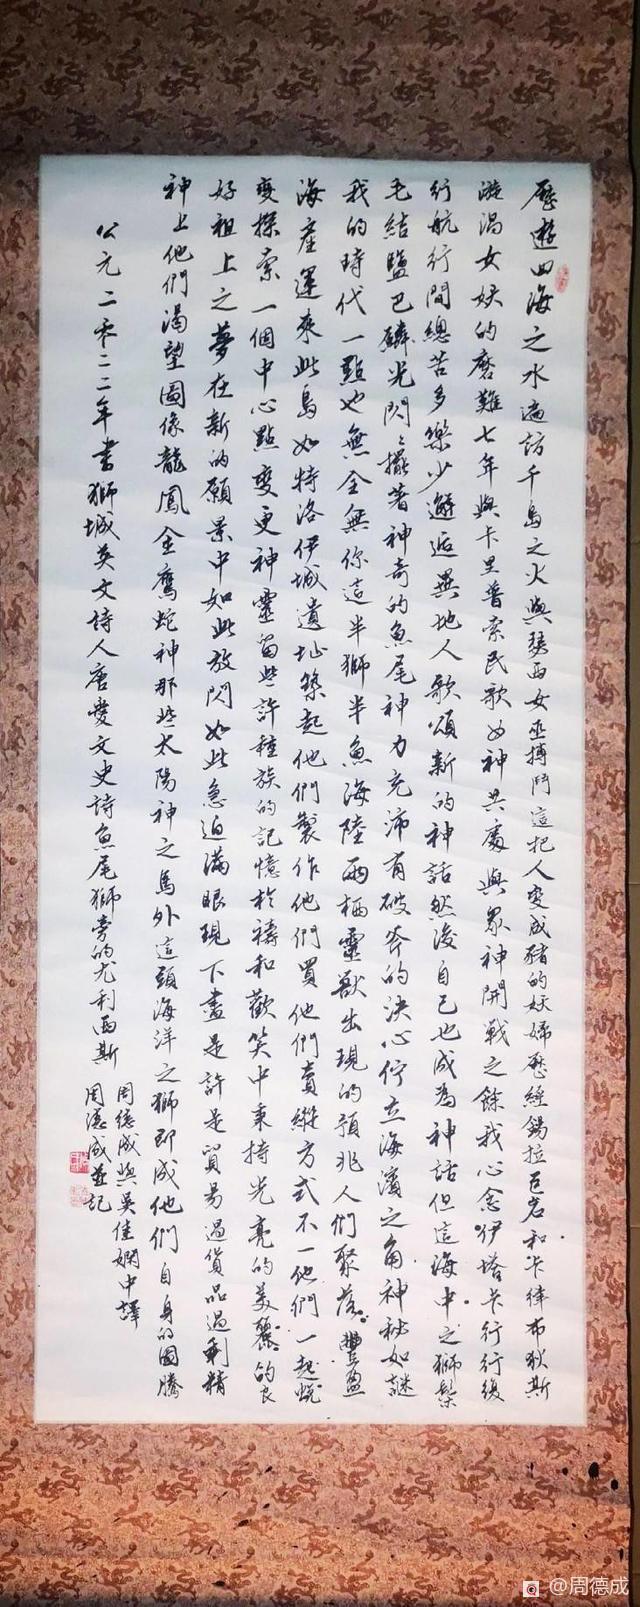 歷遊四海之水遍訪千島之火與瑟西女巫搏鬥這把人變成豬的妖婦歷經錫拉巨岩和卡律布狄斯
漩渦女妖的磨難七年與卡里普索民歌女神共處與眾神開戰之餘我心念伊塔卡行行復
行航行間總苦多樂少邂逅異地人歌頌新的神話然後自己也成為神話但這海中之獅鬃
毛結鹽巴磷光閃閃擺著神奇的魚尾神力充沛有破斧的決心佇立海濱之角神秘如謎
我的時代一點也無全無你這半獅半魚海陸兩棲靈獸出現的預兆人們聚落豐盈
海產運來此島如特洛伊城遺址築起他們製作他們買他們賣縱方式不一他們一起蛻
變探索一個中心點變更神靈留些許種族的記憶於禱和歡笑中秉持光亮的美麗的良
好祖上之夢在新的願景中如此放閃如此急迫滿眼現下盡是許是貿易過貨品過剩精
神上他們渴望圖像龍鳳金鷹蛇神那些太陽神之鳥外這頭海洋之獅即成他們自身的圖騰
公元二零二二年書獅城英文詩人唐愛文史詩魚尾獅旁的尤利西斯
周德成與吳佳嫻中譯
周德成並記
@周德成